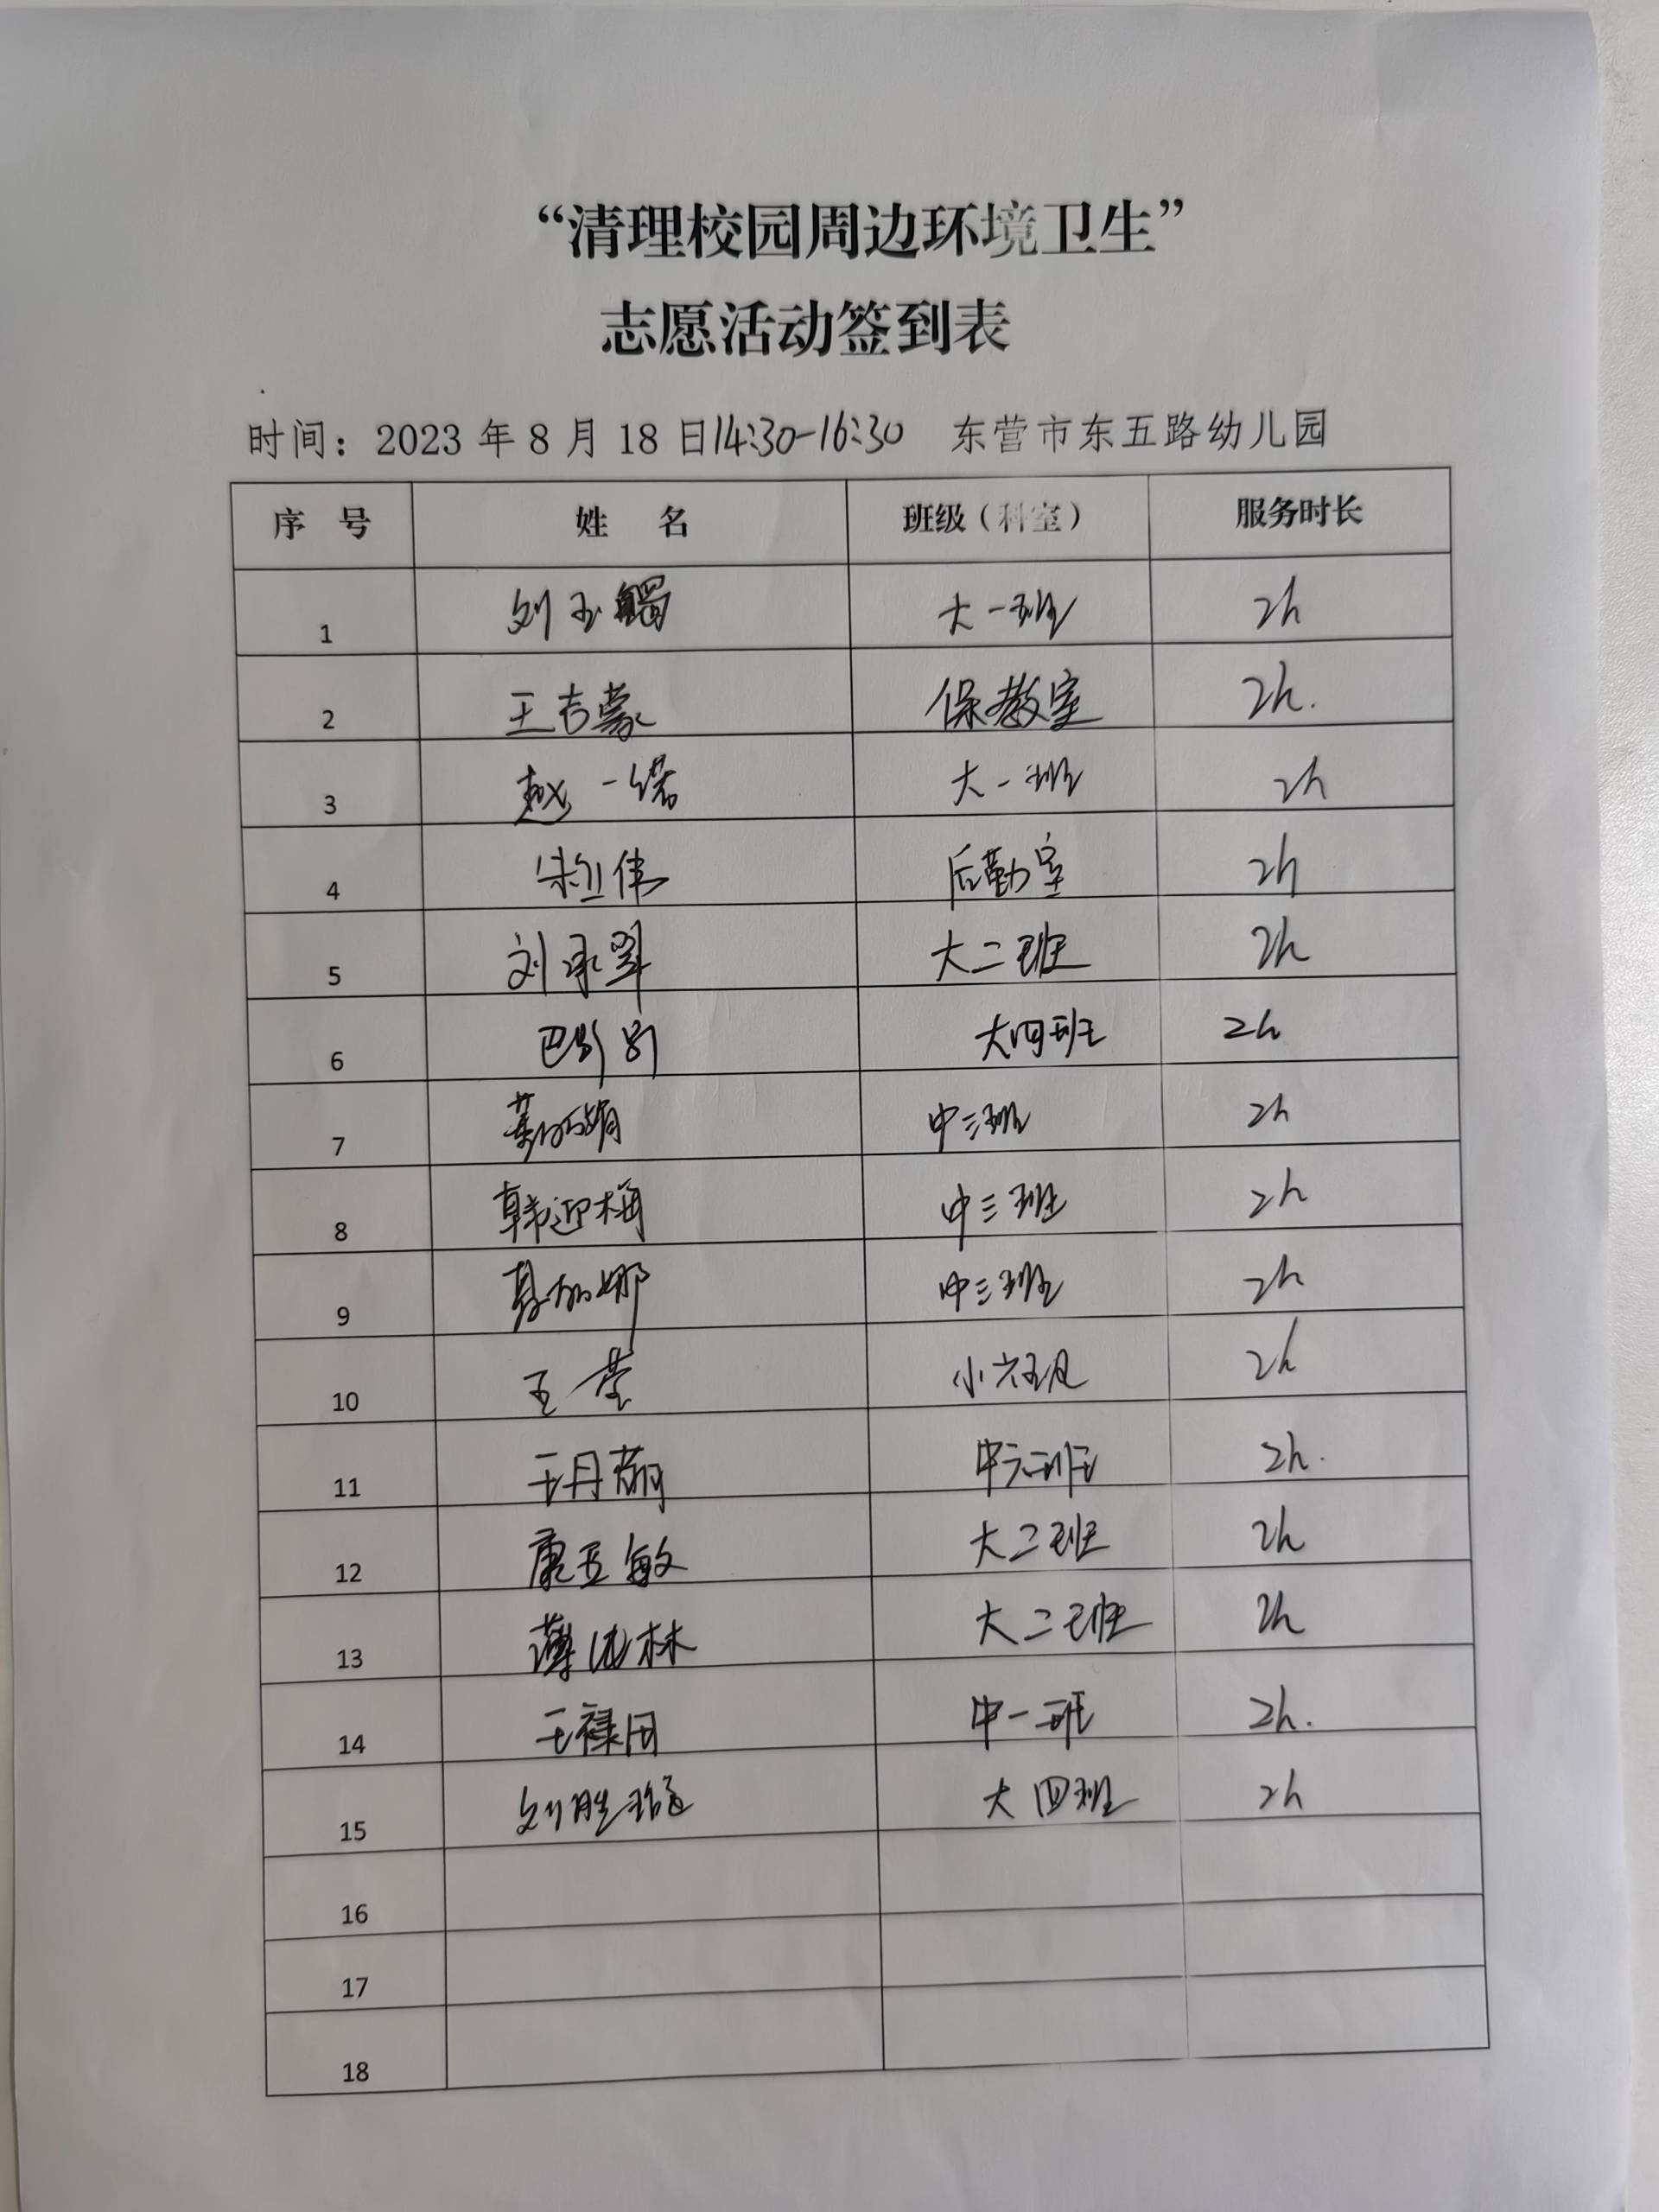 “清理校园周边环境卫生”
志愿活动签到表
时间：2023年8月18日14:30-16:30 东营市东五路幼儿园
序 号 姓 名 班级（科室） 服务时长
1 刘玉 大一班 2h
2 王吉蒙 保教室 2h.
3 赵一诺 大一班 2h
4 伟 后勤室 2h
5 刘承翠 大二班 2h
6 巴 大四班 2h
7 中三班 2h
8 韩迎梅 中三班 2h
9 娜 中三班 2h
10 王莹 小六班 2h
11 王丹丽 中六班 2h.
12 康亚敏 大二班 2h
13 薄 林 大二班 2h
14 王禄田 中一班 2h.
15 刘胜 大四班 2h
16
17
18